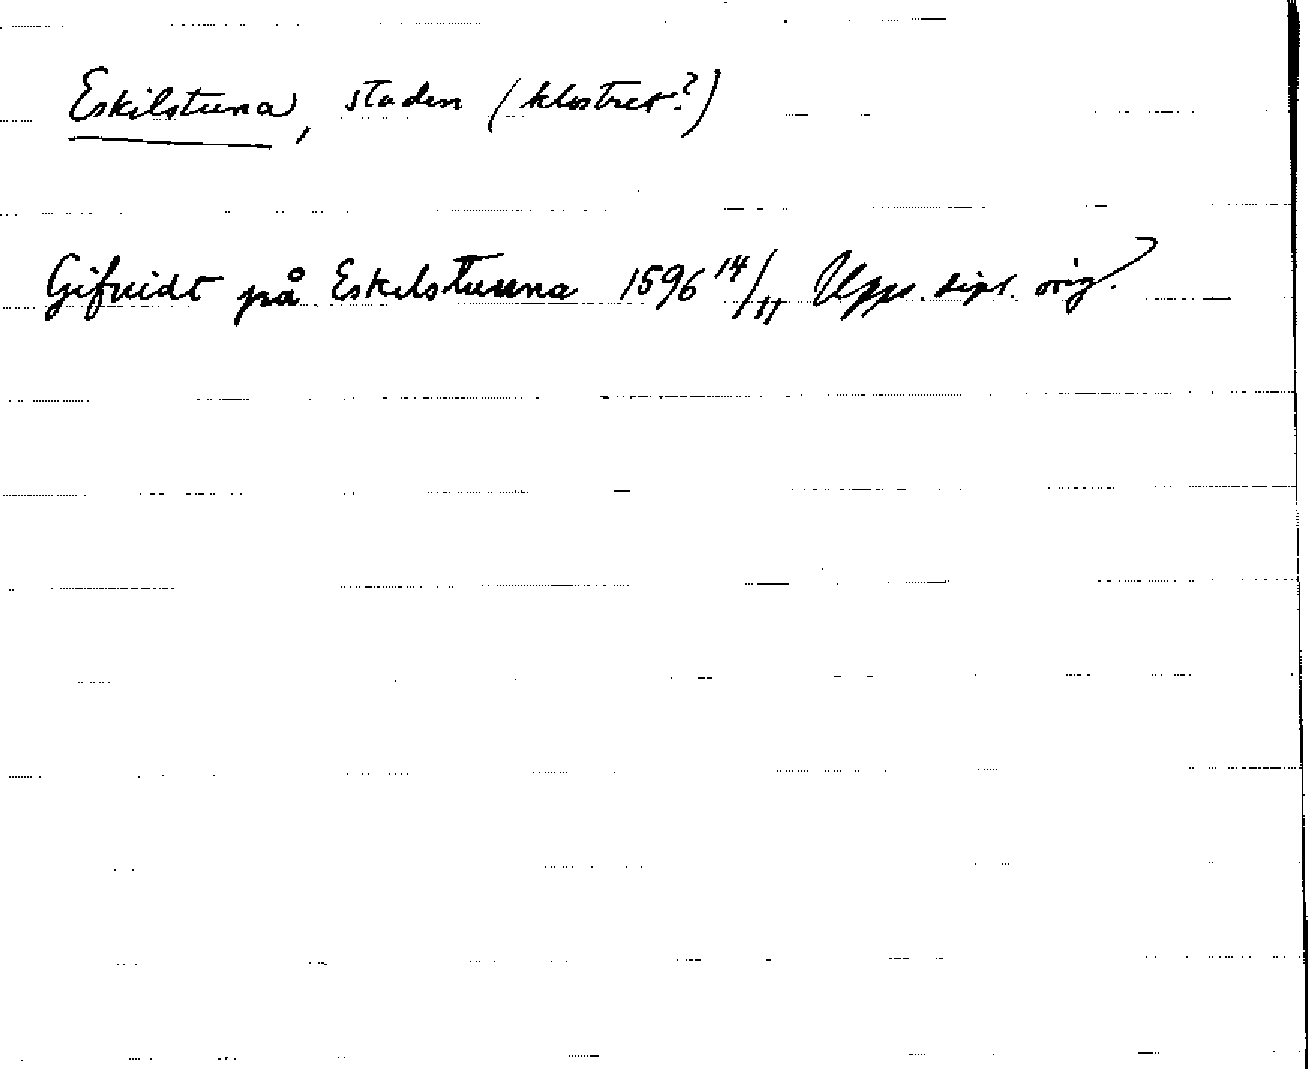 Eskilstuna, staden (klostret?)
Gifvidt på Eskilstunna 1596 14/11 Upps. dipl. orig.